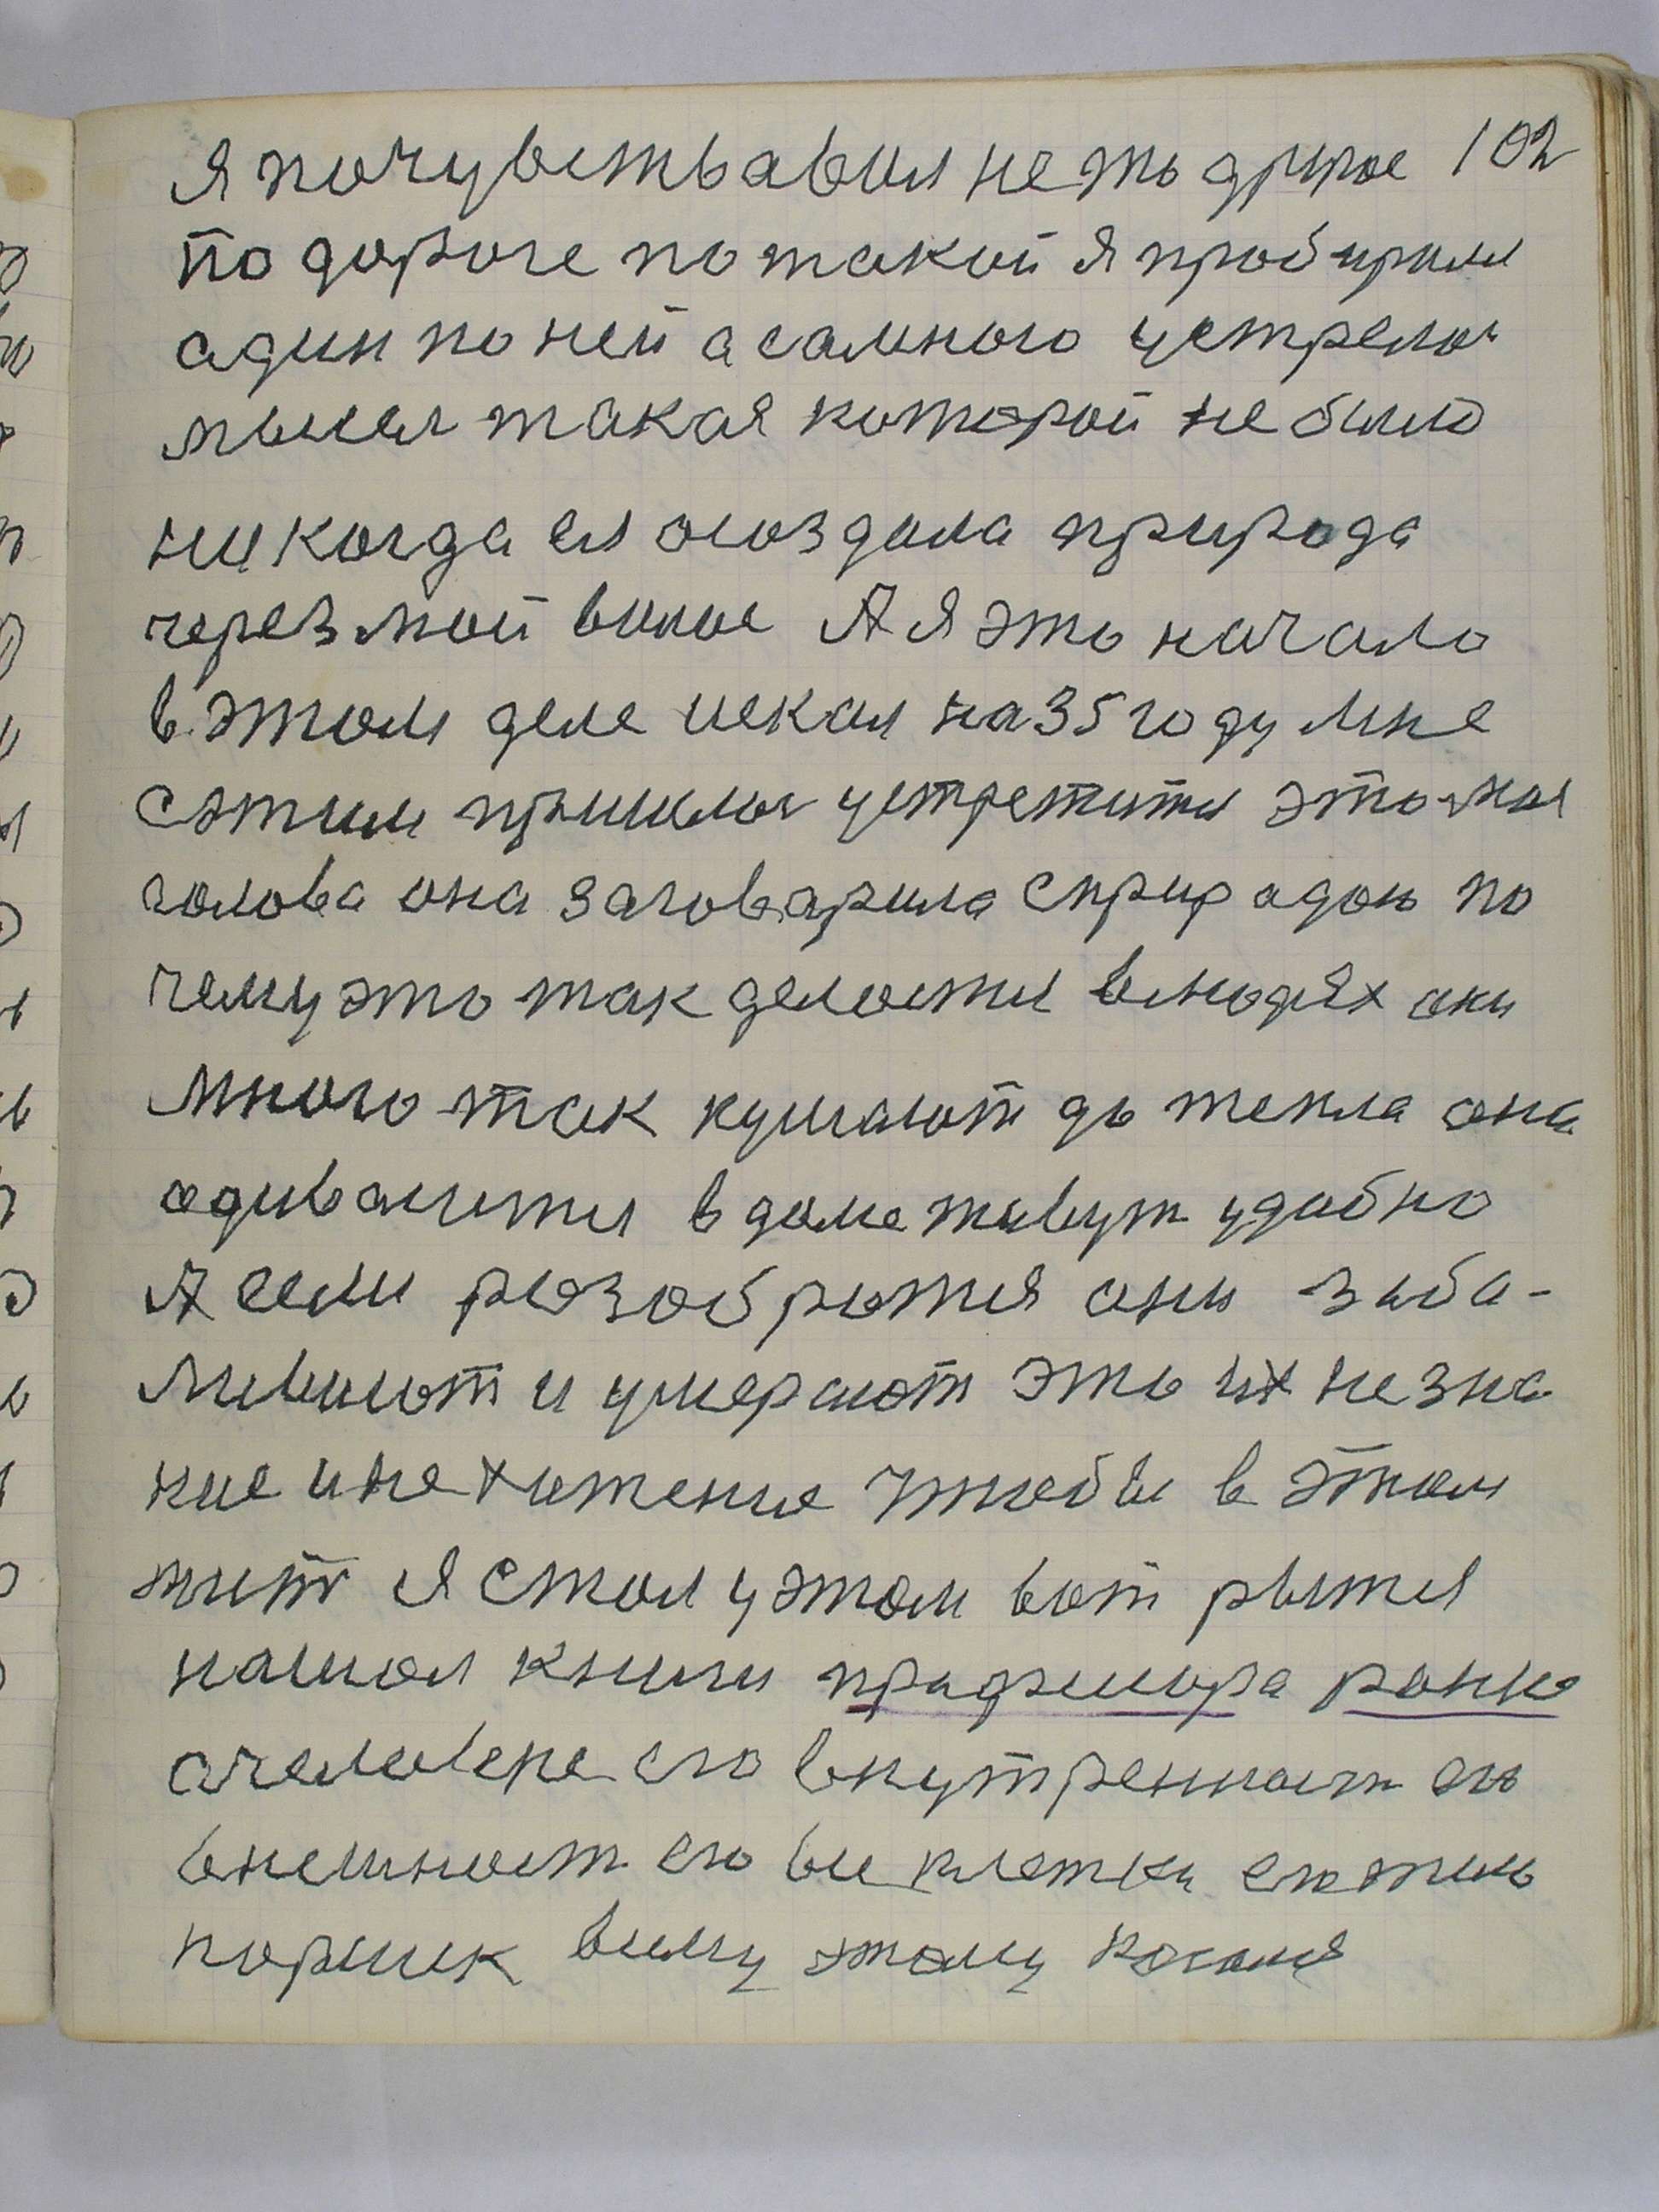 я почувствавал не то другое 102
по дороге по такой я пробирался
адин по ней а самного устрелас
мысля такая которой не было
никогда ея создала природа
через мой волос А я это начало
в этом деле искал на 35 году мне
с этим пришлос устретится это моя
голова она заговарила с природою по
чему это так делается в людях они
много так кушают до тепла они
одиваются в доме живут удобно
А если разобратся они заба-
ливают и умерают это их незна
ние и не хотение чтобы в этом
жит я стал у этом вот рытся
нашол книги прафесора
о человеке его внутренност его
внешност его все клетки
порник всему этому